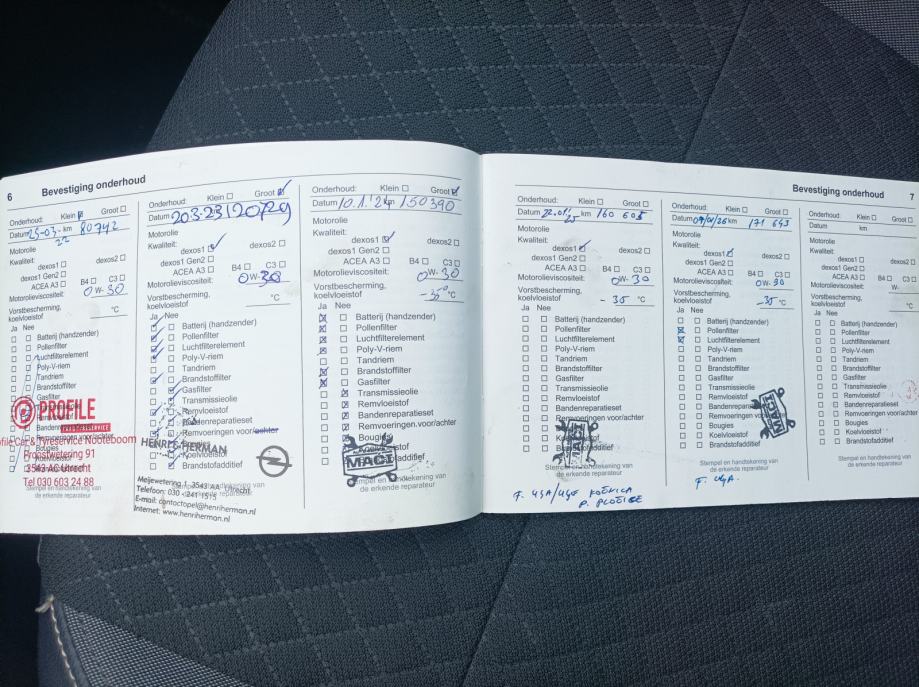 6 Bevestiging onderhoud
Onderhoud: Klein Groot
Datum 25-03-22 km 80742
Motorolie
Kwaliteit:
dexos1 dexos2
dexos1 Gen2
ACEA A3 B4 C3
Motorolieviscositeit: 0W-30
Vorstbescherming,
koelvloeistof °C
Ja Nee
Batterij (handzender)
Pollenfilter
Luchtfilterelement
Poly-V-riem
Tandriem
Brandstoffilter
PROFILE
Remvoeringen voor/achter
Bougies
Car & Tyreservice Nooteboom
Propstwetering 91
3543 AC Utrecht
Tel 030 603 24 88
de erkende reparateur
Onderhoud: Klein Groot
Datum 20.3.23
Motorolie
Kwaliteit:
dexos1 dexos2
dexos1 Gen2
ACEA A3 B4 C3
Motorolieviscositeit: 0W-30
Vorstbescherming,
koelvloeistof °C
Ja Nee
Batterij (handzender)
Pollenfilter
Luchtfilterelement
Poly-V-riem
Tandriem
Brandstoffilter
Gasfilter
Transmissieolie
Remvloeistof
Remvoeringen voor/achter
HENRI HERMAN
Koelvloeistof
Brandstofadditief
Meijewetering 1, 3543 AA Utrecht
Telefoon: 030 - 241 15 15
E-mail: contactopel@henriherman.nl
Internet: www.henriherman.nl
Onderhoud: Klein Groot
Datum 10.1.24 km 150390
Motorolie
Kwaliteit:
dexos1 dexos2
dexos1 Gen2
ACEA A3 B4 C3
Motorolieviscositeit: 0W-30
Vorstbescherming,
koelvloeistof °C
Ja Nee
Batterij (handzender)
Pollenfilter
Luchtfilterelement
Poly-V-riem
Tandriem
Brandstoffilter
Gasfilter
Transmissieolie
Remvloeistof
Bandenreparatieset
Remvoeringen voor/achter
Bougies
Koelvloeistof
MACI
Stempel en handtekening van
de erkende reparateur
Bevestiging onderhoud 7
Onderhoud: Klein Groot
Datum 22.01.25 km 160 605
Motorolie
Kwaliteit:
dexos1 dexos2
dexos1 Gen2
ACEA A3 B4 C3
Motorolieviscositeit: 0W-30
Vorstbescherming,
koelvloeistof -35 °C
Ja Nee
Batterij (handzender)
Pollenfilter
Luchtfilterelement
Poly-V-riem
Tandriem
Brandstoffilter
Gasfilter
Transmissieolie
Remvloeistof
Bandenreparatieset
Remvoeringen voor/achter
Bougies
Koelvloeistof
Brandstofadditief
MACI
Stempel en handtekening van
de erkende reparateur
F. ULJA
P. PLOČICE
Onderhoud: Klein Groot
Datum 09/01/26 km 171 643
Motorolie
Kwaliteit:
dexos1 dexos2
dexos1 Gen2
ACEA A3 B4 C3
Motorolieviscositeit: 0W-30
Vorstbescherming,
koelvloeistof -35 °C
Ja Nee
Batterij (handzender)
Pollenfilter
Luchtfilterelement
Poly-V-riem
Tandriem
Brandstoffilter
Gasfilter
Transmissieolie
Remvloeistof
Bandenreparatieset
Remvoeringen voor/achter
Bougies
Koelvloeistof
Brandstofadditief
MACI
Stempel en handtekening van
de erkende reparateur
F. ULJA.
Onderhoud: Klein Groot
Datum km
Motorolie
Kwaliteit:
dexos1 dexos2
dexos1 Gen2
ACEA A3 B4 C3
Motorolieviscositeit: W-
Vorstbescherming,
koelvloeistof °C
Ja Nee
Batterij (handzender)
Pollenfilter
Luchtfilterelement
Poly-V-riem
Tandriem
Brandstoffilter
Gasfilter
Transmissieolie
Remvloeistof
Bandenreparatieset
Remvoeringen voor/achter
Bougies
Koelvloeistof
Brandstofadditief
Stempel en handtekening van
de erkende reparateur